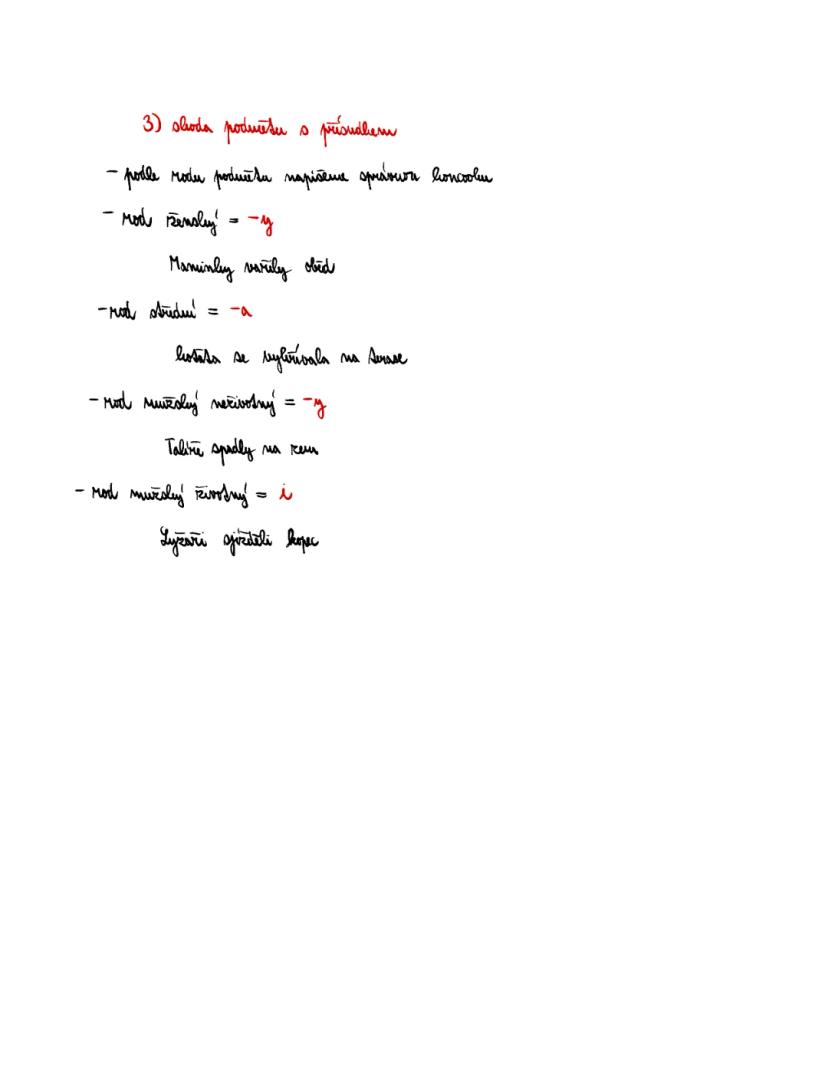 3) shoda podmětu s přísudkem
- podle rodu podmětu napíšeme správnou koncovku
- rod ženský = -y
Maminky vařily oběd
- rod střední = -a
koťata se vyhřívala na terase
- rod mužský neživotný = -y
Talíře spadly na zem
- rod mužský životný = i
Lyžaři sjížděli kopec